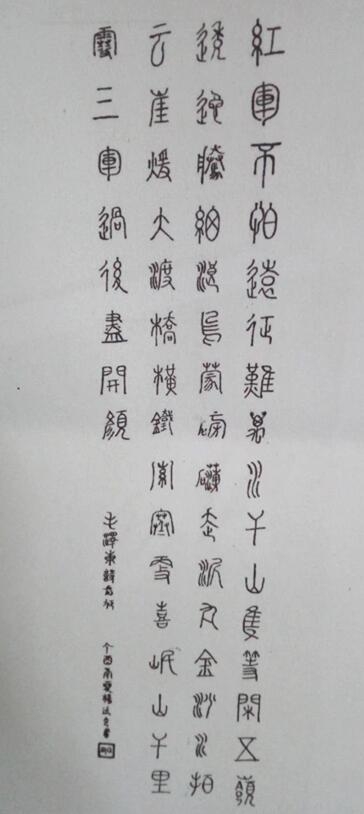 紅軍不怕遠征難萬水千山隻等閑五嶺
逶迤騰細浪烏蒙磅礴走泥丸金沙水拍
云崖煖大渡橋橫鐵索寒更喜岷山千里
雪三軍過後盡開顏
毛澤東詩